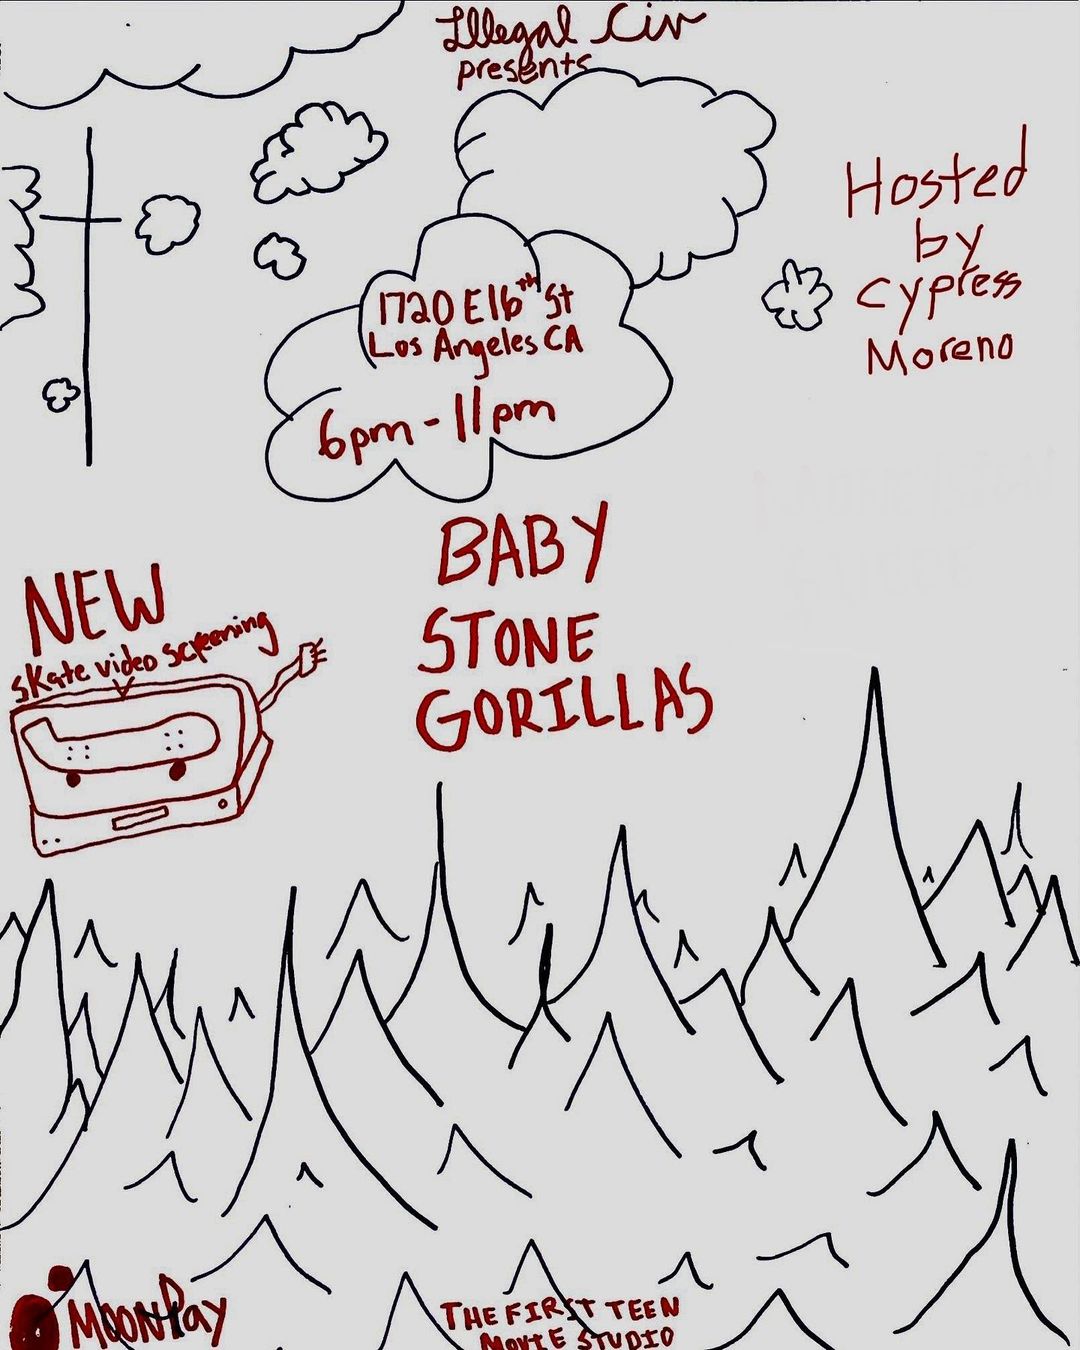 Illegal Civ
presents
Hosted
by
Cypress
Moreno
1720 E16th St
Los Angeles CA
6pm - 11pm
BABY
STONE
GORILLAS
NEW
skate video screening
MOONPay
THE FIRST TEEN
MOVIE STUDIO